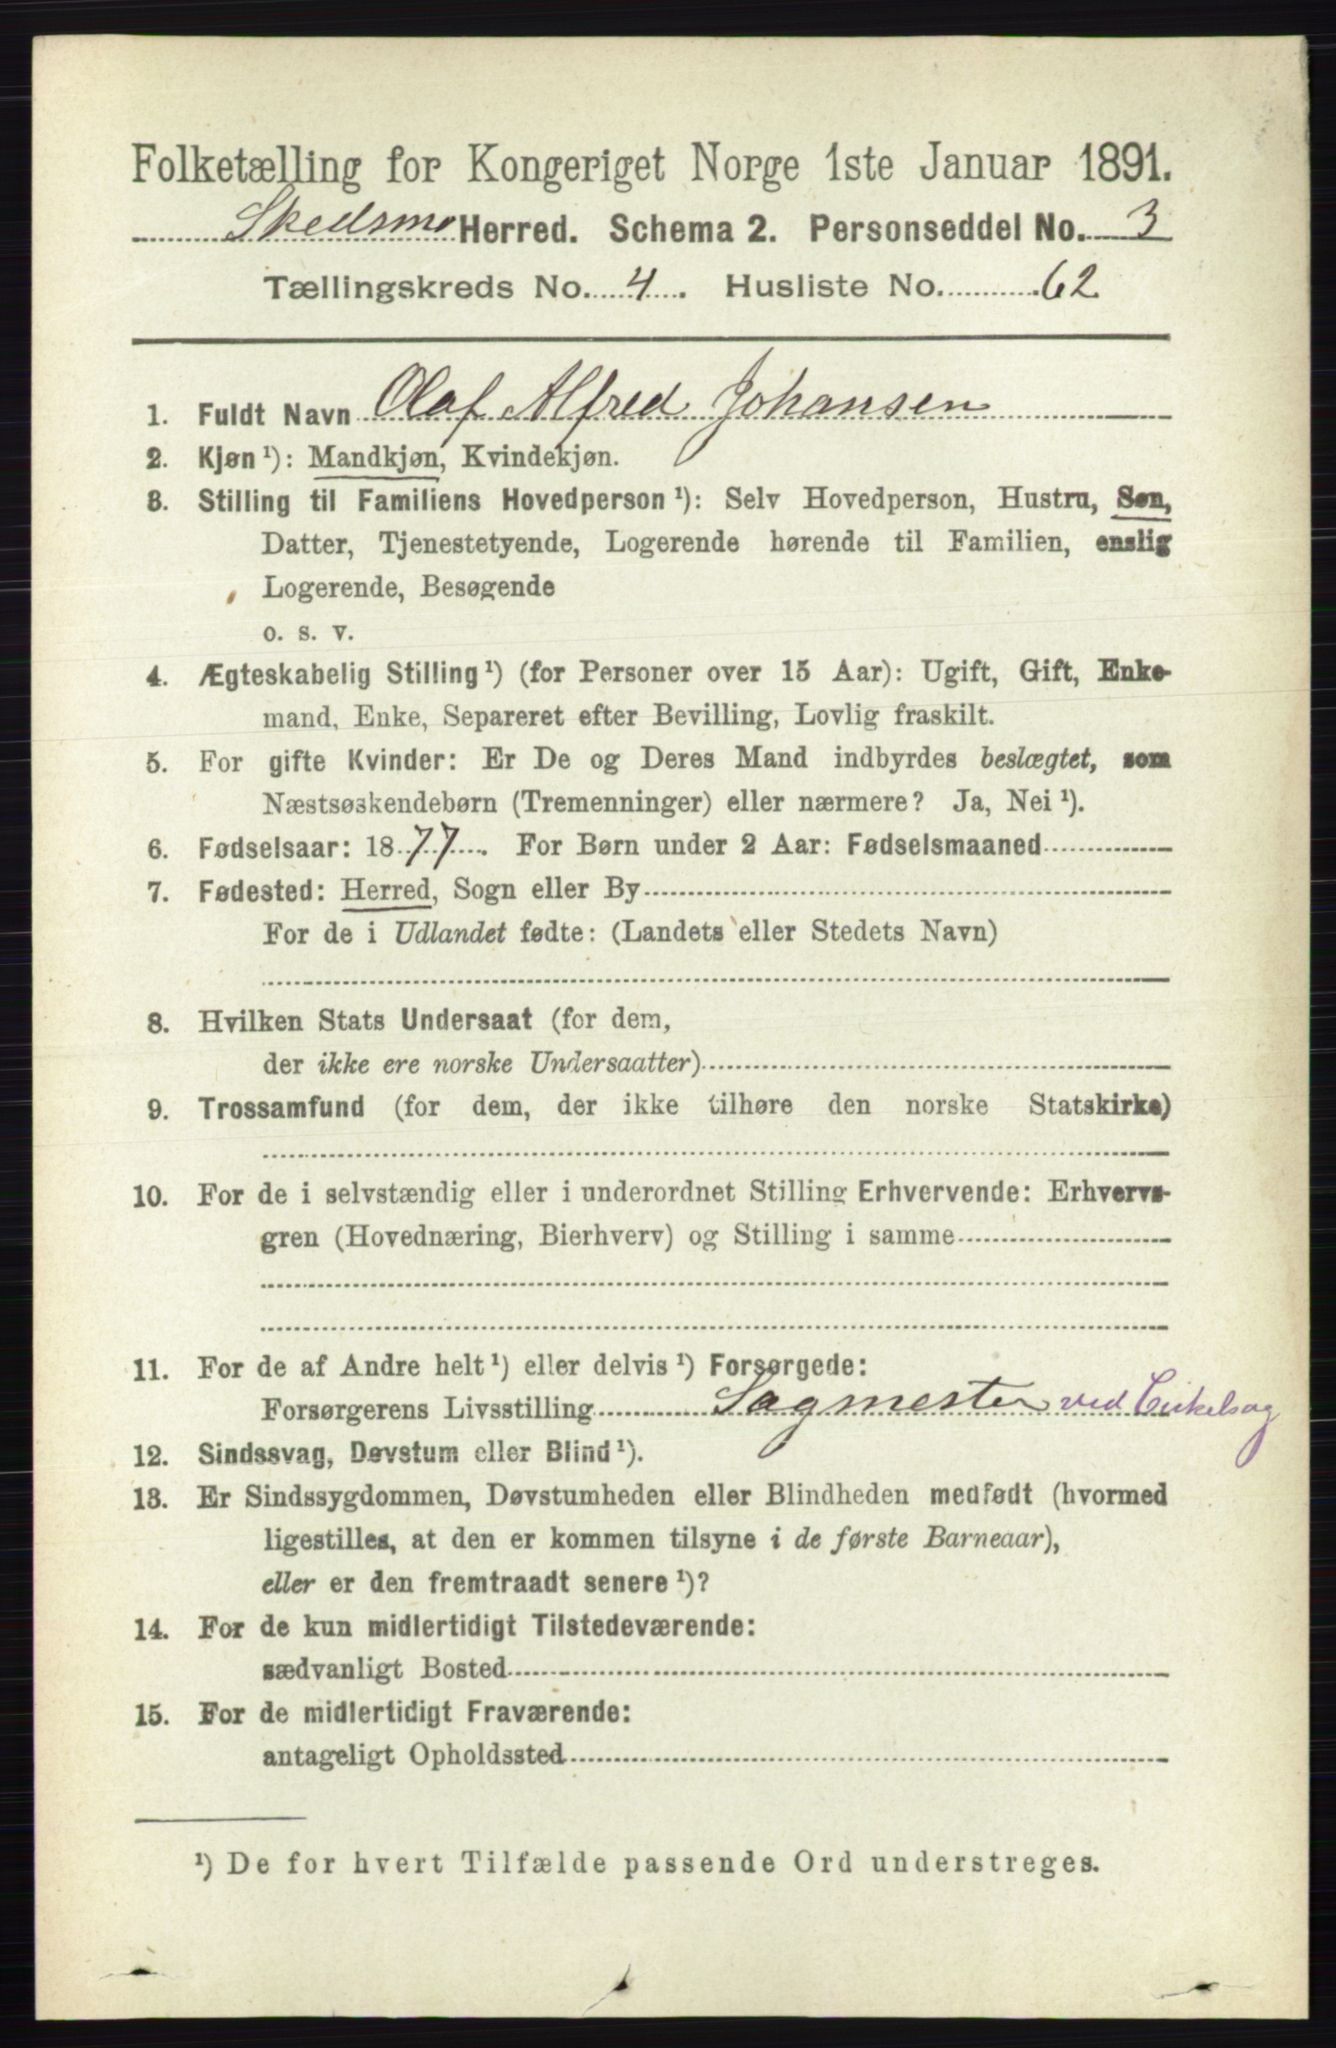 Folketælling for Kongeriget Norge 1ste Januar 1891.
Skedsmo Herred. Schema 2. Personseddel No. 3
Tællingskreds No. 4. Husliste No. 62
1. Fuldt Navn Olaf Alfred Johansen
2. Kjøn ¹): Mandkjøn, Kvindekjøn.
3. Stilling til Familiens Hovedperson ¹): Selv Hovedperson, Hustru, Søn,
Datter, Tjenestetyende, Logerende hørende til Familien, enslig
Logerende, Besøgende
o. s. v.
4. Ægteskabelig Stilling ¹) (for Personer over 15 Aar): Ugift, Gift, Enke-
mand, Enke, Separeret efter Bevilling, Lovlig fraskilt.
5. For gifte Kvinder: Er De og Deres Mand indbyrdes beslægtet, som
Næstsøskendebørn (Tremenninger) eller nærmere? Ja, Nei ¹).
6. Fødselsaar: 1877. For Børn under 2 Aar: Fødselsmaaned
7. Fødested: Herred, Sogn eller By
For de i Udlandet fødte: (Landets eller Stedets Navn)
8. Hvilken Stats Undersaat (for dem,
der ikke ere norske Undersaatter)
9. Trossamfund (for dem, der ikke tilhøre den norske Statskirke)
10. For de i selvstændig eller i underordnet Stilling Erhvervende: Erhvervs-
gren (Hovednæring, Bierhverv) og Stilling i samme
11. For de af Andre helt ¹) eller delvis ¹) Forsørgede:
Forsørgerens Livsstilling Sagmester ved Cirkelsag
12. Sindssvag, Døvstum eller Blind ¹).
13. Er Sindssygdommen, Døvstumheden eller Blindheden medfødt (hvormed
ligestilles, at den er kommen tilsyne i de første Barneaar),
eller er den fremtraadt senere ¹)?
14. For de kun midlertidigt Tilstedeværende:
sædvanligt Bosted
15. For de midlertidigt Fraværende:
antageligt Opholdssted
¹) De for hvert Tilfælde passende Ord understreges.